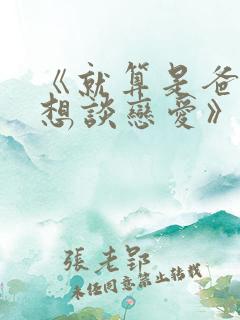 《就算是爸
想談戀愛》
張老郢
未經同意禁止轉載